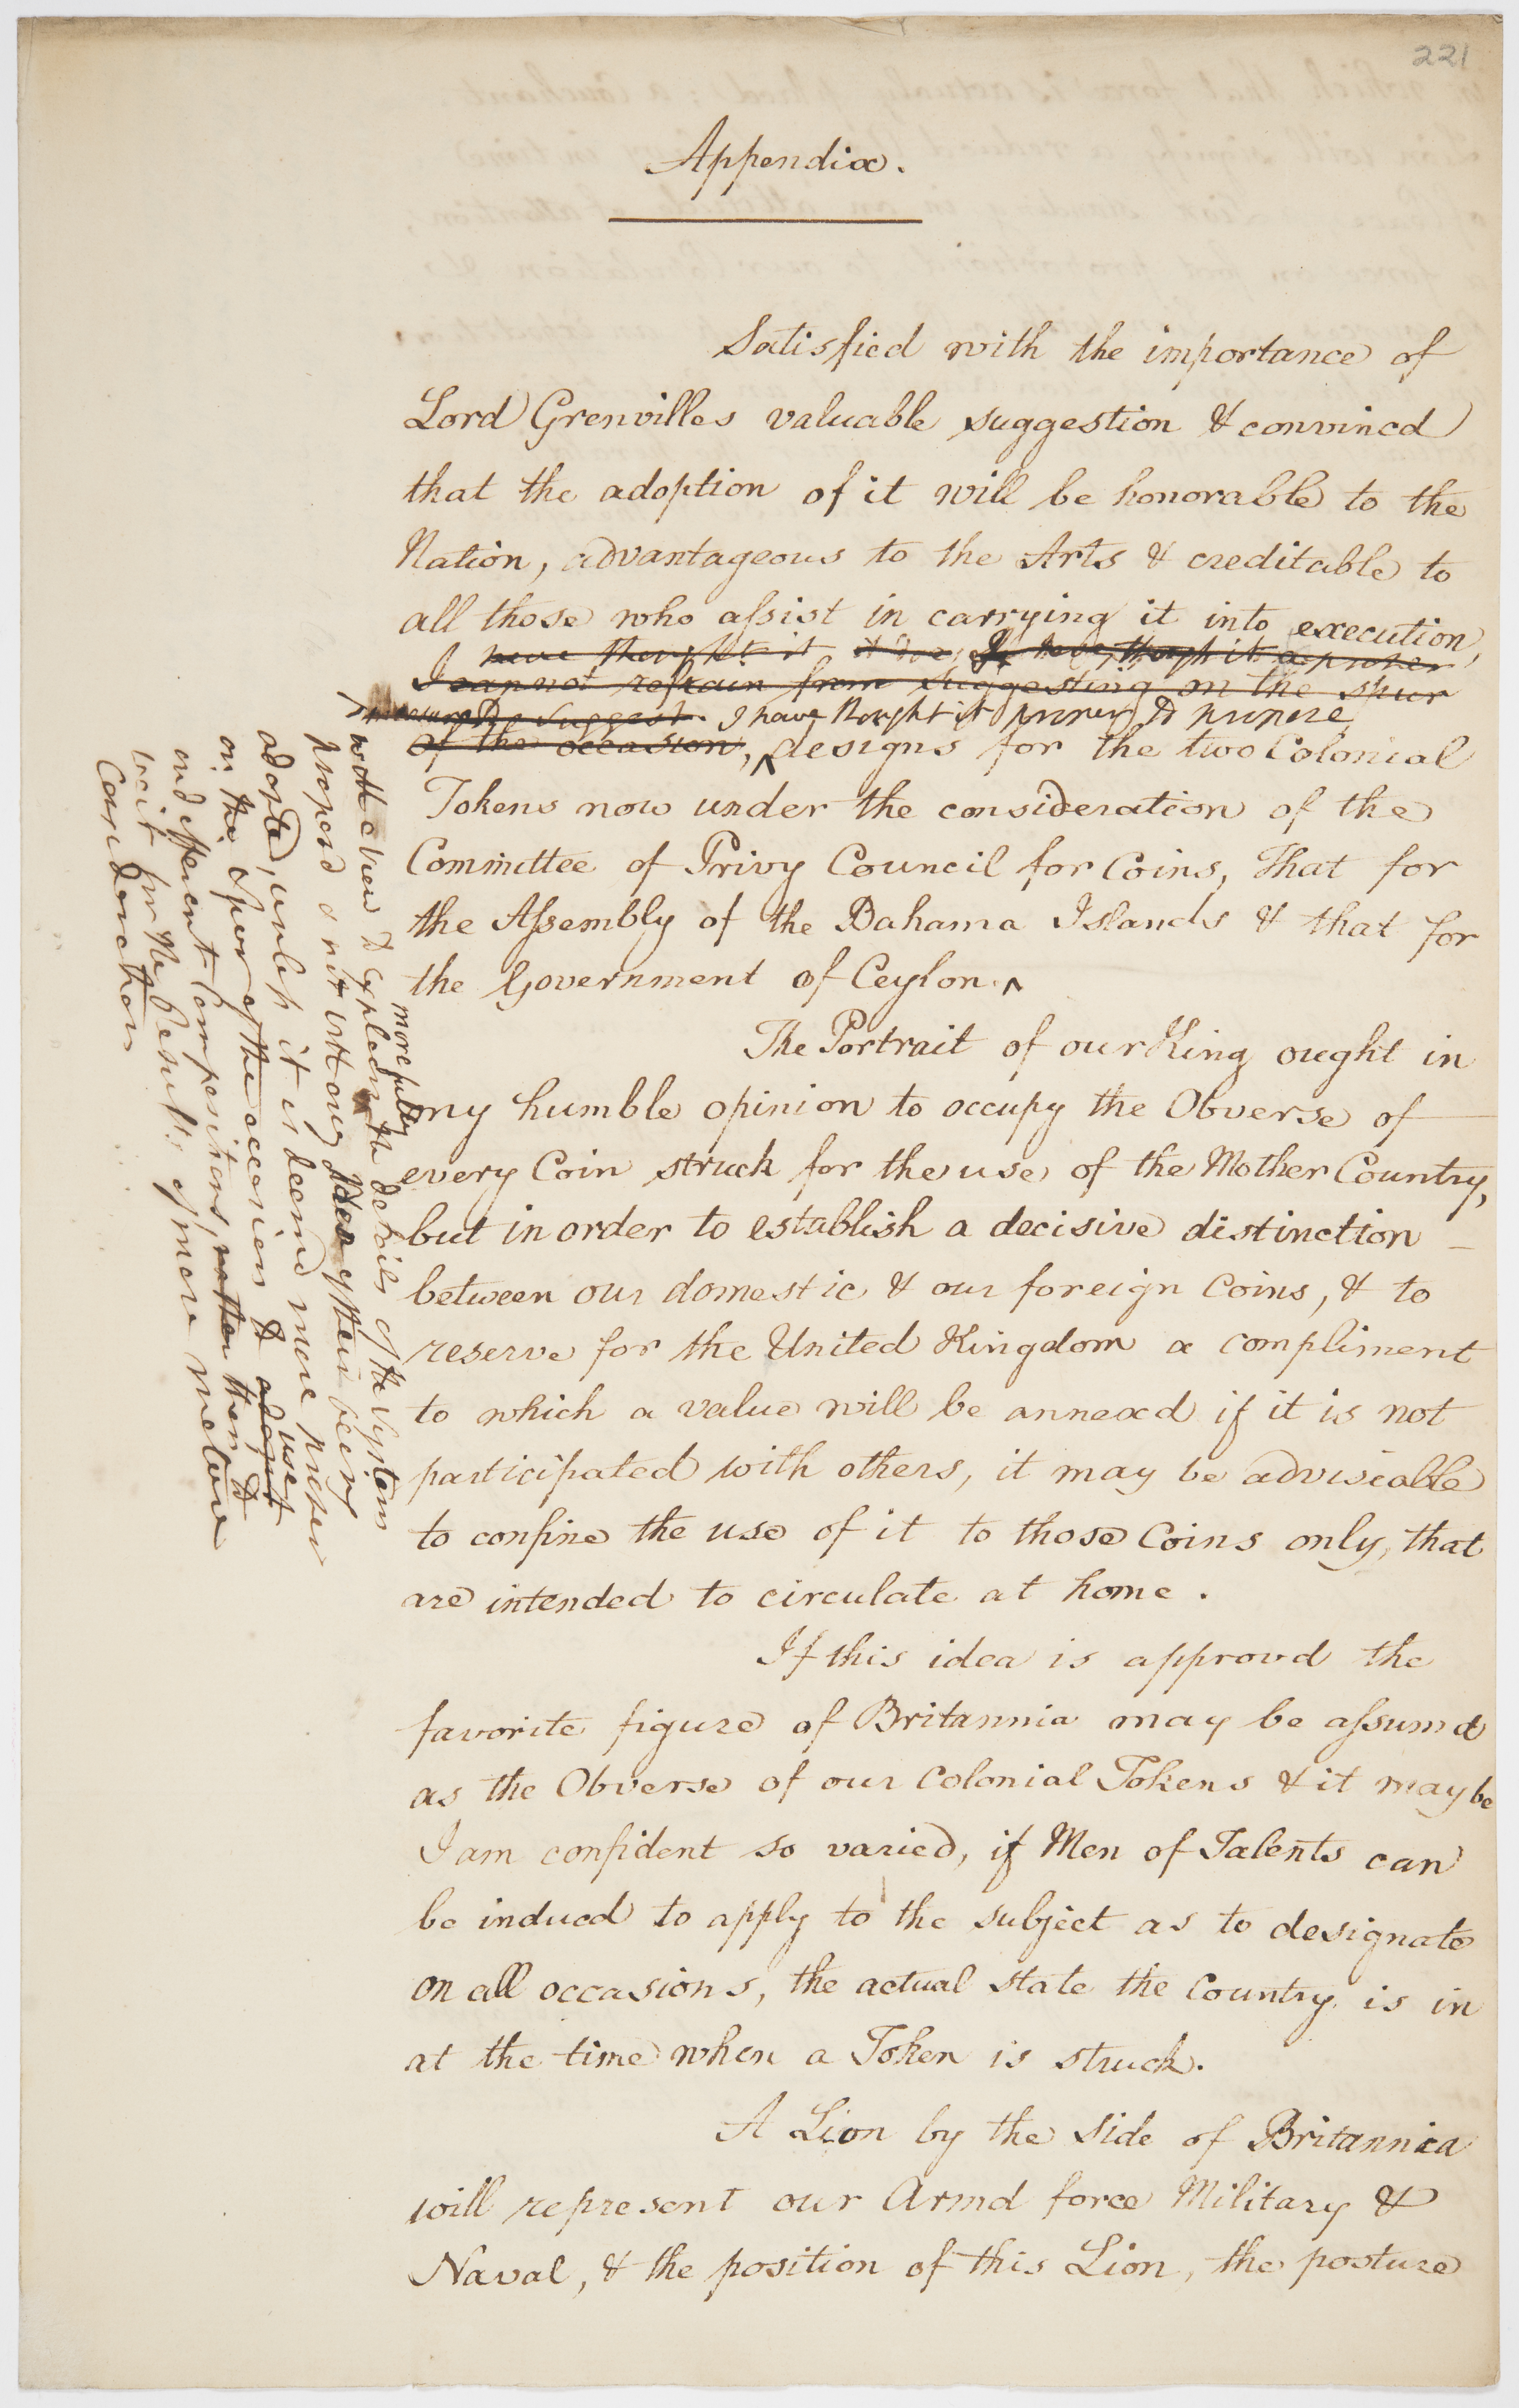 221
Appendix.
Satisfied with the importance of
Lord Grenvilles valuable suggestion & convincd
that the adoption of it will be honorable to the
Nation, advantageous to the Arts & creditable to
all those who assist in carrying it into execution,
I have thought it I have thought it a proper
I cannot refrain from suggesting on the spur
measure to suggest. I have thought it proper to propose
of the occasion, ^ designs for the two Colonial
Tokens now under the consideration of the
Committee of Privy Council for Coins, That for
the Assembly of the Bahama Islands & that for
the Government of Ceylon. ^
The Portrait of our King ought in
my humble opinion to occupy the Obverse of
every Coin struck for the use of the Mother Country,
but in order to establish a decisive distinction
between our domestic & our foreign Coins, & to
reserve for the United Kingdom a compliment
to which a value will be annexd if it is not
participated with others, it may be adviseable
to confine the use of it to those Coins only, that
are intended to circulate at home.
If this idea is approvd the
favorite figure of Britannia may be assumd
as the Obverse of our Colonial Tokens & it may be
I am confident so varied, if Men of Talents can
be inducd to apply to the subject as to designate
on all occasions, the actual state the Country is in
at the time when a Token is struck.
A Lion by the side of Britannia
will represent our Armd force Military &
Naval, & the position of this Lion, the posture
more fully
with a view to explain the details of the System
proposd & not with any Idea of their being
adopted, unless it is deemd more proper
on the Spur of the occasion to adopt use
and efficient Compositions, rather then to
wait for the Results of more mature
Consideration